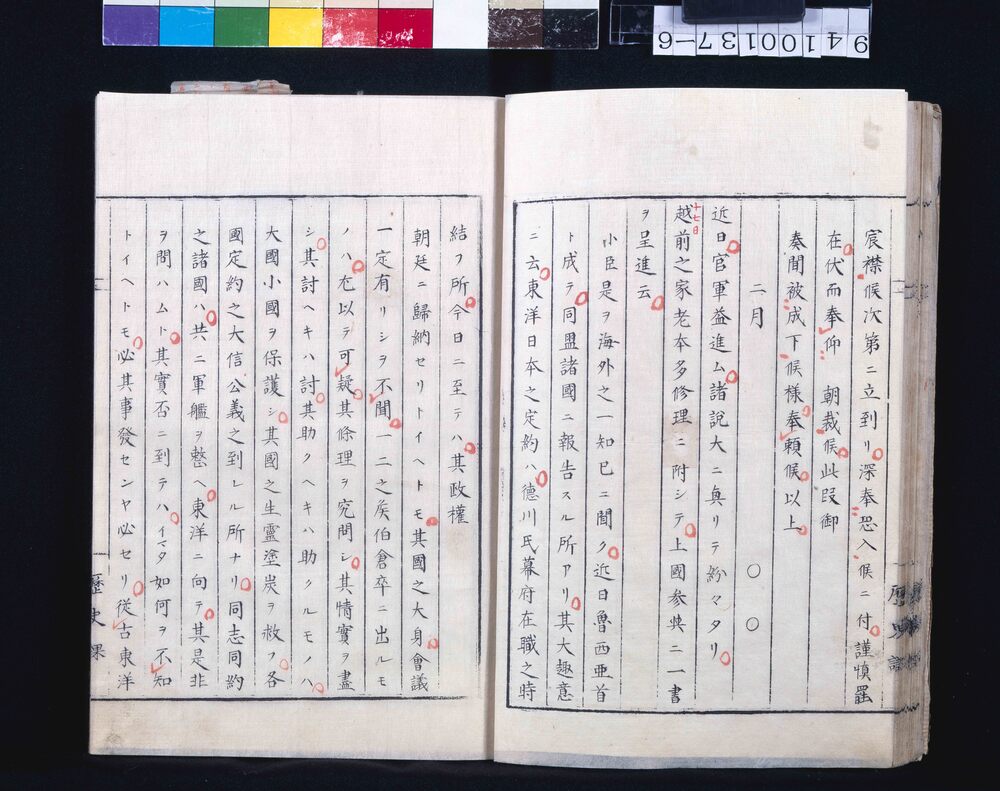 宸襟候次第ニ立到リ深奉恐入候ニ付謹慎罷
在伏而奉仰　朝裁候此段御
奏聞被成下候様奉頼候以上
二月　○○
近日官軍益進ム諸說大ニ真リテ紛々タリ
十七日
越前之家老本多修理ニ附シテ上國參與ニ一書
ヲ呈進云
小臣是ヲ海外之一知已ニ聞ク近日魯西亜首
ト成テ同盟諸國ニ報告スル所アリ其大趣意
ニ云東洋日本之定約ハ德川氏幕府在職之時
結フ所今日ニ至テハ其政權
朝廷ニ歸納セリトイヘトモ其國之大身會議
一定有リシヲ不聞一二之矦伯倉卒ニ出ルモ
ノハ尤以テ可疑其條理ヲ究問シ其情實ヲ盡
シ其討ヘキハ討其助クヘキハ助クルモノハ
大國小國ヲ保護シ其國之生靈塗炭ヲ救フ各
國定約之大信公義之到レル所ナリ同志同約
之諸國ハ共ニ軍艦ヲ整ヘ東洋ニ向テ其是非
ヲ問ハムト其實否ニ到テハイマタ如何ヲ不知
トイヘトモ必其事發センヤ必セリ從古東洋
歷史課
94100137-6